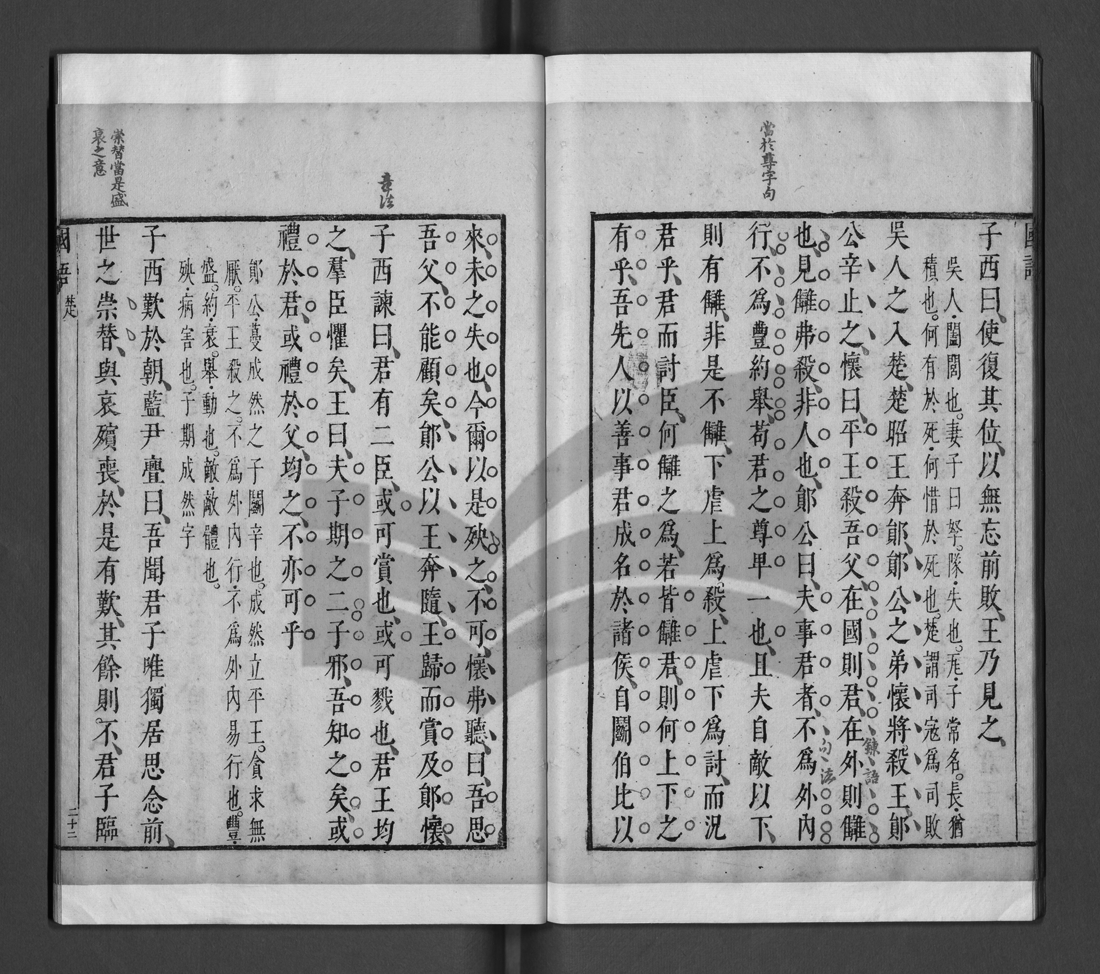 國語
當於尊字句
子西曰、使復其位、以無忘前敗、王乃見之、
吳人・闔閭也。妻子曰孥。隊・失也。瓦・子常名。長・猶
積也。何有於死・何惜於死也。楚謂司寇爲司敗
吳人之入楚、楚昭王奔鄖、鄖公之弟懷將殺王、鄖
公辛止之、懷曰、平王殺吾父、在國則君、在外則讎
鍊語
也、見讎弗殺、非人也、鄖公曰、夫事君者、不爲外內
句法
行、不爲豐約舉、苟君之尊卑一也、且夫自敵以下、
則有讎、非是不讎、下虐上爲殺、上虐下爲討、而況
君乎、君而討臣、何讎之爲、若皆讎君、則何上下之
有乎、吾先人以善事君成名於諸侯、自鬭伯比以
來、未之失也、今爾以是殃之、不可、懷弗聽、曰、吾思
吾父、不能顧矣、鄖公以王奔隨、王歸而賞及鄖懷、
章法
子西諫曰、君有二臣、或可賞也、或可戮也、君王均
之、羣臣懼矣、王曰、夫子期之二子邪、吾知之矣、或
禮於君、或禮於父、均之、不亦可乎
鄖公・蔓成然之子鬭辛也。成然立平王。貪求無
厭。平王殺之。不爲外內行・不爲外內易行也。豐・
盛。約・衰。舉・動也。敵・敵體也。
殃・病害也。子期成然字
子西歎於朝、藍尹亹曰、吾聞君子唯獨居思念前
世之崇替、與哀殯喪、於是有歎、其餘則不、君子臨
崇替當是盛
衰之意
國語 楚
二十三